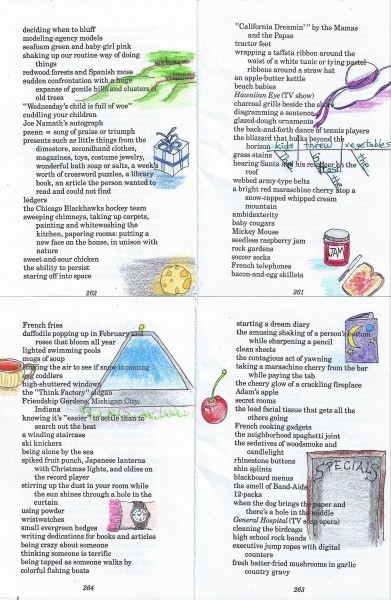 deciding when to bluff
modeling-agency models
seafoam green and baby-girl pink
shaking up our routine way of doing
things
redwood forests and Spanish moss
sudden confrontation with a huge
expanse of gentle hills and clusters of
old trees
"Wednesday's child is full of woe"
cuddling your children
Joe Namath's autograph
paean = song of praise or triumph
presents such as little things from the
dimestore, secondhand clothes,
magazines, toys, costume jewelry,
wonderful bath soap or salts, a week's
worth of crossword puzzles, a library
book, an article the person wanted to
read and could not find
ledgers
the Chicago Blackhawks hockey team
sweeping chimneys, taking up carpets,
painting and whitewashing the
kitchen, papering rooms: putting a
new face on the house, in unison with
nature
sweet-and-sour chicken
the ability to persist
staring off into space
262
"California Dreamin'" by the Mamas
and the Papas
tractor feet
wrapping a taffeta ribbon around the
waist of a white tunic or tying pastel
ribbons around a straw hat
an apple-butter kettle
beach babies
Hawaiian Eye (TV show)
charcoal grills beside the
diagramming a sentence
glazed-dough ornaments
the back-and-forth dance of tennis players
the blizzard that hulks beyond the
horizon
kids threw vegetables
The in the
trash
grass stains
hearing Santa and his reindeer on the
roof
webbed army-type belts
a bright red maraschino cherry atop a
snow-capped whipped cream
mountain
ambidexterity
baby cougars
Mickey Mouse
seedless raspberry jam
rock gardens
soccer socks
French telephones
bacon-and-egg skillets
JAM
261
French fries
daffodils popping up in February and
roses that bloom all year
lighted swimming pools
mugs of soup
the air to see if snow is coming
egg coddlers
high-shuttered windows
the "Think Factory" slogan
Friendship Gardens, Michigan City,
Indiana
knowing it's "easier" to settle than to
search out the best
a winding staircase
ski knickers
being alone by the sea
spiked fruit punch, Japanese lanterns
with Christmas lights, and oldies on
the record player
stirring up the dust in your room while
the sun shines through a hole in the
curtain
using powder
wristwatches
small evergreen hedges
writing dedications for books and articles
being crazy about someone
thinking someone is terrific
being tapped as someone walks by
colorful fishing boats
264
starting a dream diary
the amusing shaking of a person's bottom
while sharpening a pencil
clean sheets
the contagious act of yawning
taking a maraschino cherry from the bar
while paying the tab
the cheery glow of a crackling fireplace
Adam's apple
secret rooms
the lead facial tissue that gets all the
others going
French cooking gadgets
the neighborhood spaghetti joint
the sedatives of woodsmoke and
candlelight
rhinestone buttons
shin splints
blackboard menus
the smell of Band-Aids
12-packs
when the dog brings the paper and
there's a hole in the middle
General Hospital (TV soap opera)
cleaning the birdcage
high school rock bands
executive jump ropes with digital
counters
fresh batter-fried mushrooms in garlic
country gravy
SPECIALS
263